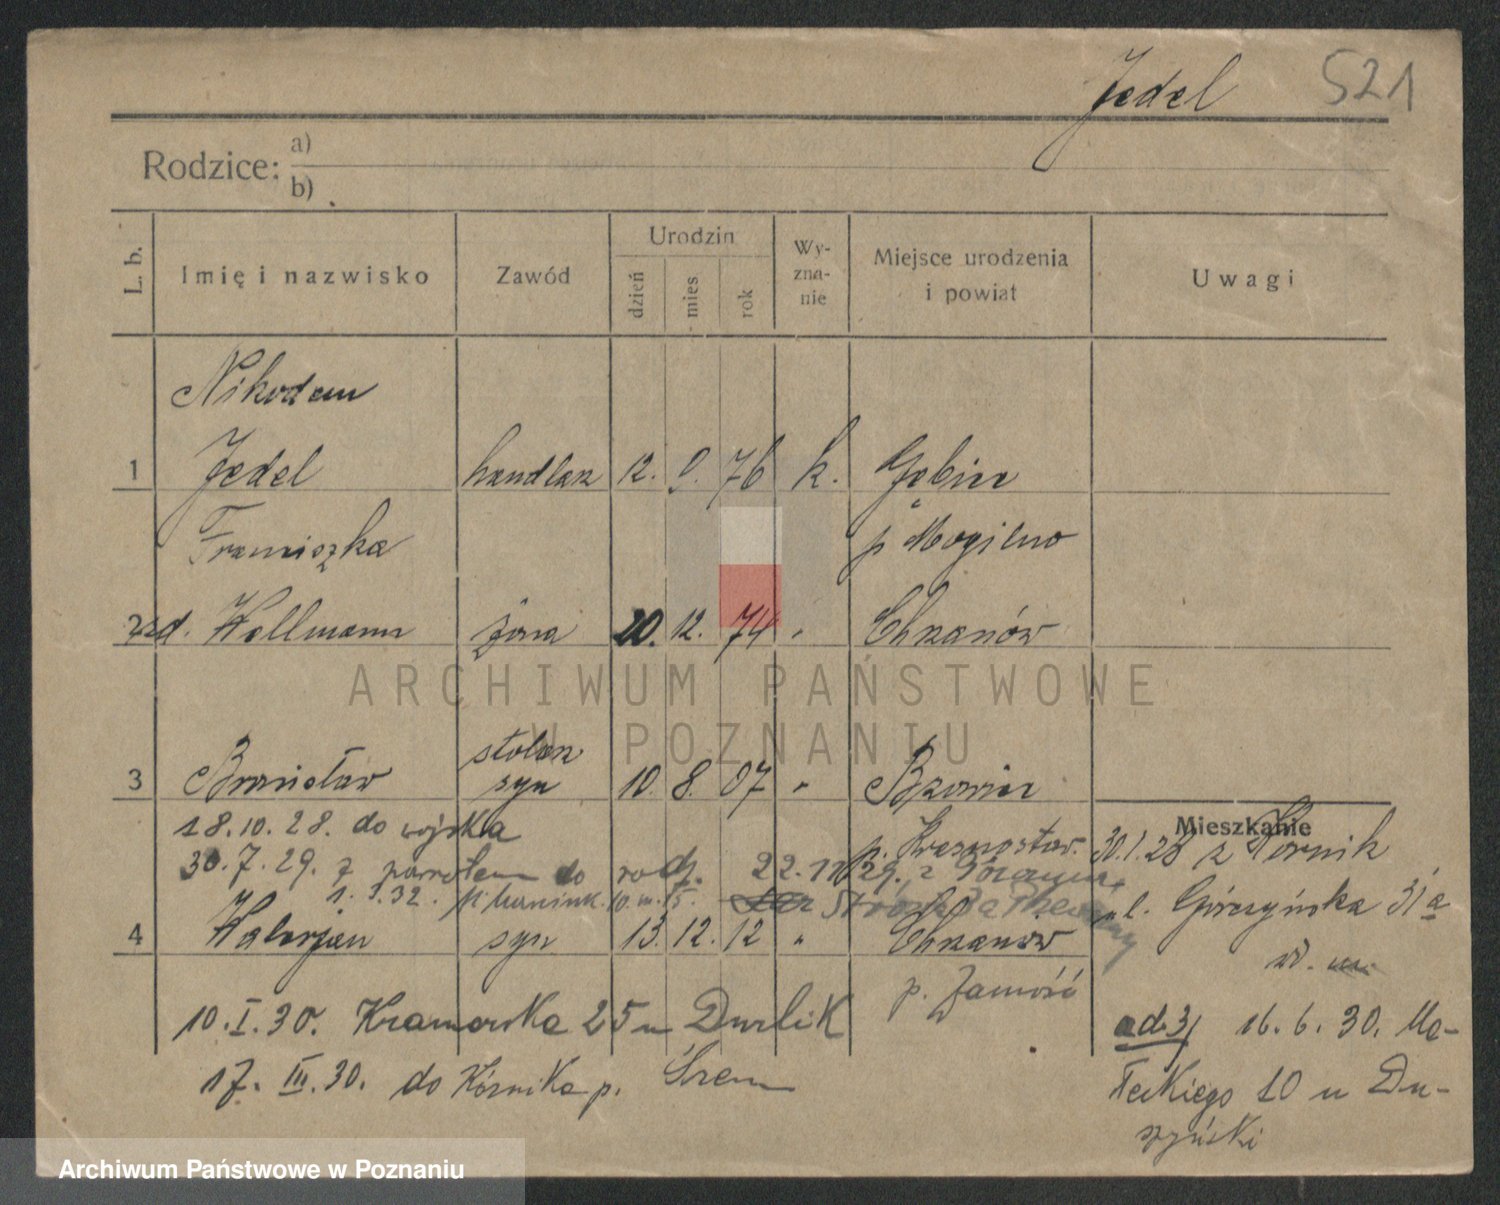 Jedel 521
Rodzice: a)
b)
L. b. Imię i nazwisko Zawód Urodzin dzień mies rok Wy-zna-nie Miejsce urodzenia i powiat Uwagi
Nikodem
1 Jedel handlarz 12. 9. 76 k. Gębice
Franciszka p Mogilno
2 zd. Wellmann żona 20. 12. 74 " Chrzanów
ARCHIWUM PAŃSTWOWE
W POZNANIU
stolarz
3 Bronisław syn 10. 8. 07 " Bzowiec
18.10.28. do wojska p. Krasnostaw.
Mieszkanie
30.1.28 z Kórnik
30.7.29. z powrotem do rodz. 22.11.29.
1. 3. 32. 10. m. 15.
ul. Górczyńska 31a
4 Walerjan syn 13. 12. 12 " Chrzanów
p. Zamość
10. I. 30. Kramarska 25 u Durlik
ad. 3/ 16. 6. 30. Ma-
17. III. 30. do Kórnika p. Śrem
łeckiego 10 u Du-
szyński
Archiwum Państwowe w Poznaniu